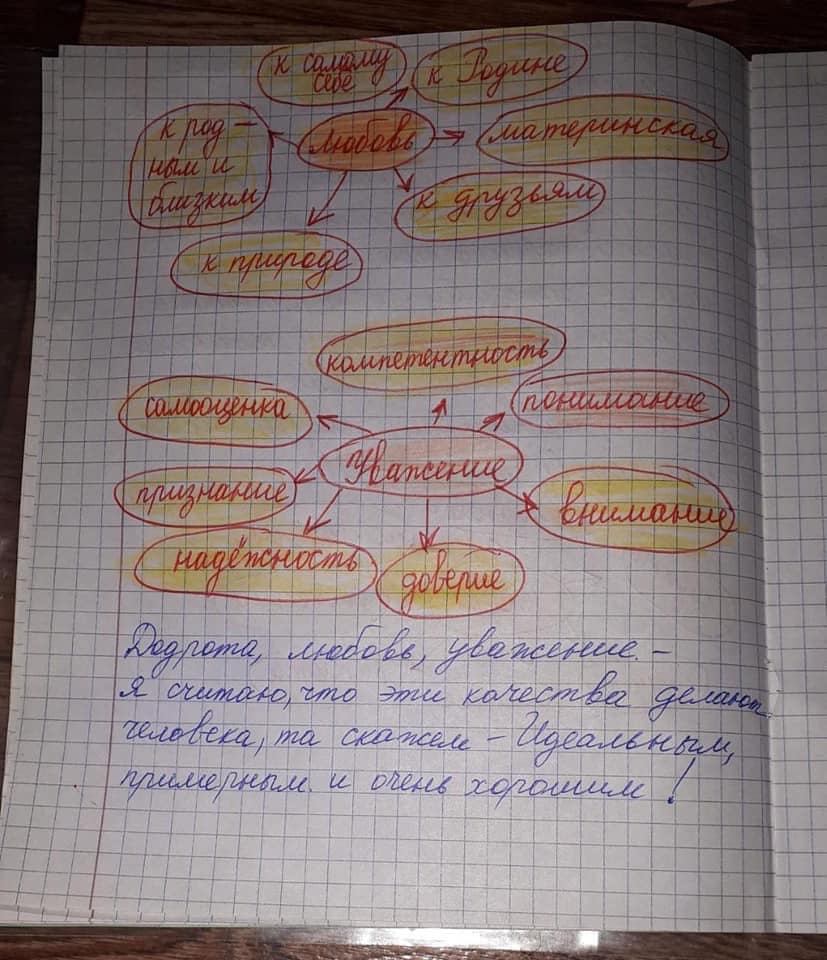 к самому
себе
к Родине
к род-
ным и
близким
любовь
материнская
к друзьям
к природе
компетентность
самооценка
понимание
Уважение
признание
внимание
надёжность
доверие
Додрота, любовь, уважение. -
Я считаю, что эти качества делают
человека, та скажем - Идеальным,
примерным. и очень хорошим!